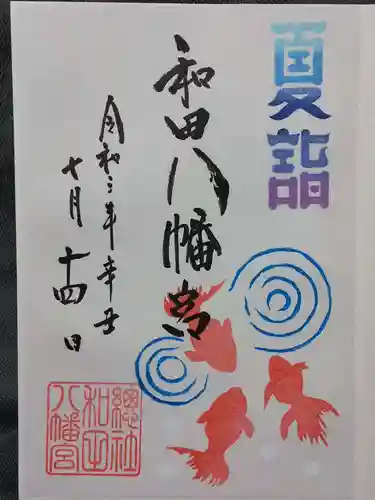 夏詣
和田八幡宮
令和三年辛丑
十月十四日
總社
和田
八幡宮